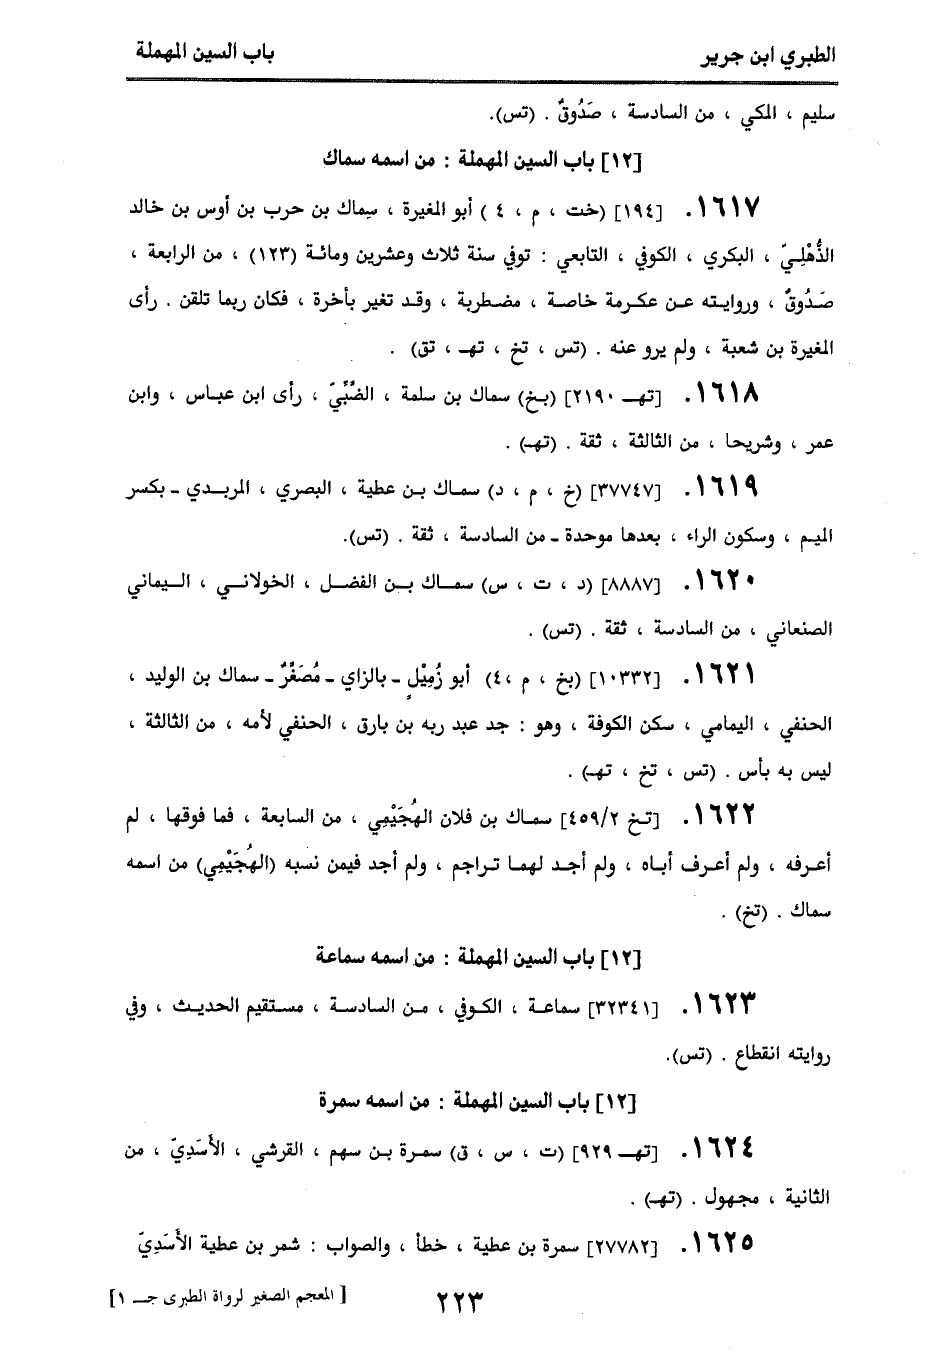 الطبري ابن جرير
باب السين المهملة
سليم ، المكي ، من السادسة ، صَدُوقٌ . (تس).
[١٢] باب السين المهملة : من اسمه سماك
١٦١٧. [١٩٤] (خت ، م ، ٤ ) أبو المغيرة ، سِماك بن حرب بن أوس بن خالد
الذُّهْلِيّ ، البكري ، الكوفي ، التابعي : توفي سنة ثلاث وعشرين ومائة (١٢٣) ، من الرابعة ،
صَدُوقٌ ، وروايته عن عكرمة خاصة ، مضطربة ، وقد تغير بأخرة ، فكان ربما تلقن . رأى
المغيرة بن شعبة ، ولم يرو عنه . (تس ، تخ ، تهـ ، تق) .
١٦١٨. [تهـ ٢١٩٠] (بخ) سماك بن سلمة ، الضَّبِّيّ ، رأى ابن عباس ، وابن
عمر ، وشريحا ، من الثالثة ، ثقة . (تهـ) .
١٦١٩. [٣٧٧٤٧] (خ ، م ، د) سماك بن عطية ، البصري ، المربدي ـ بكسر
الميم ، وسكون الراء ، بعدها موحدة ـ من السادسة ، ثقة . (تس).
١٦٢٠. [٨٨٨٧] (د ، ت ، س) سماك بن الفضل ، الخولاني ، اليماني
الصنعاني ، من السادسة ، ثقة . (تس) .
١٦٢١. [١٠٣٣٢] (بخ ، م ،٤) أبو زُمِيْلٍ ـ بالزاي ـ مُصَغَّرٌ ـ سماك بن الوليد ،
الحنفي ، اليمامي ، سكن الكوفة ، وهو : جد عبد ربه بن بارق ، الحنفي لأمه ، من الثالثة ،
ليس به بأس . (تس ، تخ ، تهـ) .
١٦٢٢. [تخ ٤٥٩/٢] سماك بن فلان الهُجَيْمِي ، من السابعة ، فما فوقها ، لم
أعرفه ، ولم أعرف أباه ، ولم أجد لهما تراجم ، ولم أجد فيمن نسبه (الهُجَيْمِي) من اسمه
سماك . (تخ) .
[١٢] باب السين المهملة : من اسمه سماعة
١٦٢٣. [٣٢٣٤١] سماعة ، الكوفي ، من السادسة ، مستقيم الحديث ، وفي
روايته انقطاع . (تس).
[١٢] باب السين المهملة : من اسمه سمرة
١٦٢٤. [تهـ ٩٢٩] (ت ، س ، ق) سمرة بن سهم ، القرشي ، الأَسَدِيّ ، من
الثانية ، مجهول . (تهـ) .
١٦٢٥. [٢٧٧٨٢] سمرة بن عطية ، خطأ ، والصواب : شمر بن عطية الأَسَدِيّ
٢٢٣
[ المعجم الصغير لرواة الطبرى جـ ١]